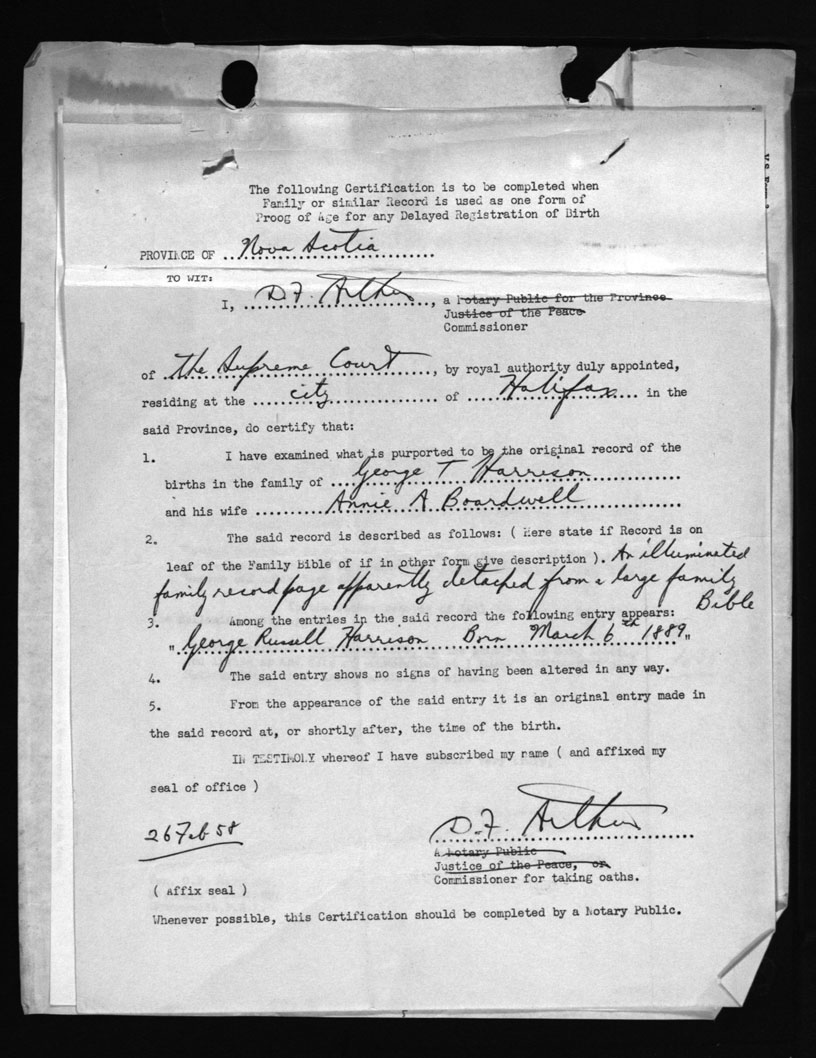 The following Certification is to be completed when
Family or similar Record is used as one form of
Proog of Age for any Delayed Registration of Birth
PROVINCE OF ..Nova Scotia..........
TO WIT:
I, ..D.F. ..........., a Notary Public for the Province
Justice of the Peace
Commissioner
of ..the Supreme Court........, by royal authority duly appointed,
residing at the ......city............... of .....Halifax.... in the
said Province, do certify that:
1. I have examined what is purported to be the original record of the
births in the family of ....George T Harrison..............
and his wife ..........Annie A Boardwell..............
2. The said record is described as follows: ( Here state if Record is on
leaf of the Family Bible of if in other form give description ). An illuminated
family record page apparently detached from a large family
Bible
3. Among the entries in the said record the following entry appears:
" George Russell Harrison Born March 6th 1889 "
4. The said entry shows no signs of having been altered in any way.
5. From the appearance of the said entry it is an original entry made in
the said record at, or shortly after, the time of the birth.
IN TESTIMONY whereof I have subscribed my name ( and affixed my
seal of office )
26 Feb 58
D.F.
A Notary Public
Justice of the Peace, or
Commissioner for taking oaths.
( Affix seal )
Whenever possible, this Certification should be completed by a Notary Public.